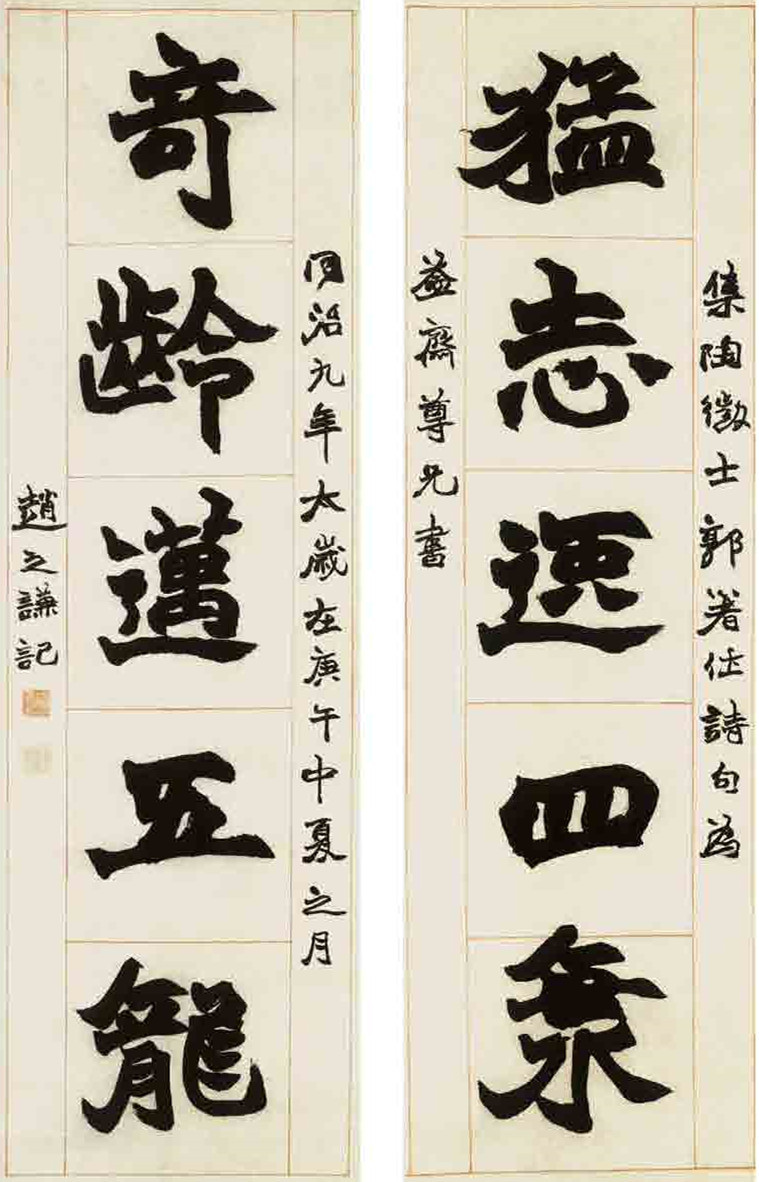 集陶徵士郭著作詩句為
猛志逸四海
益齋尊兄書
同治九年太歲在庚午中夏之月
竒齡邁五龍
趙之謙記